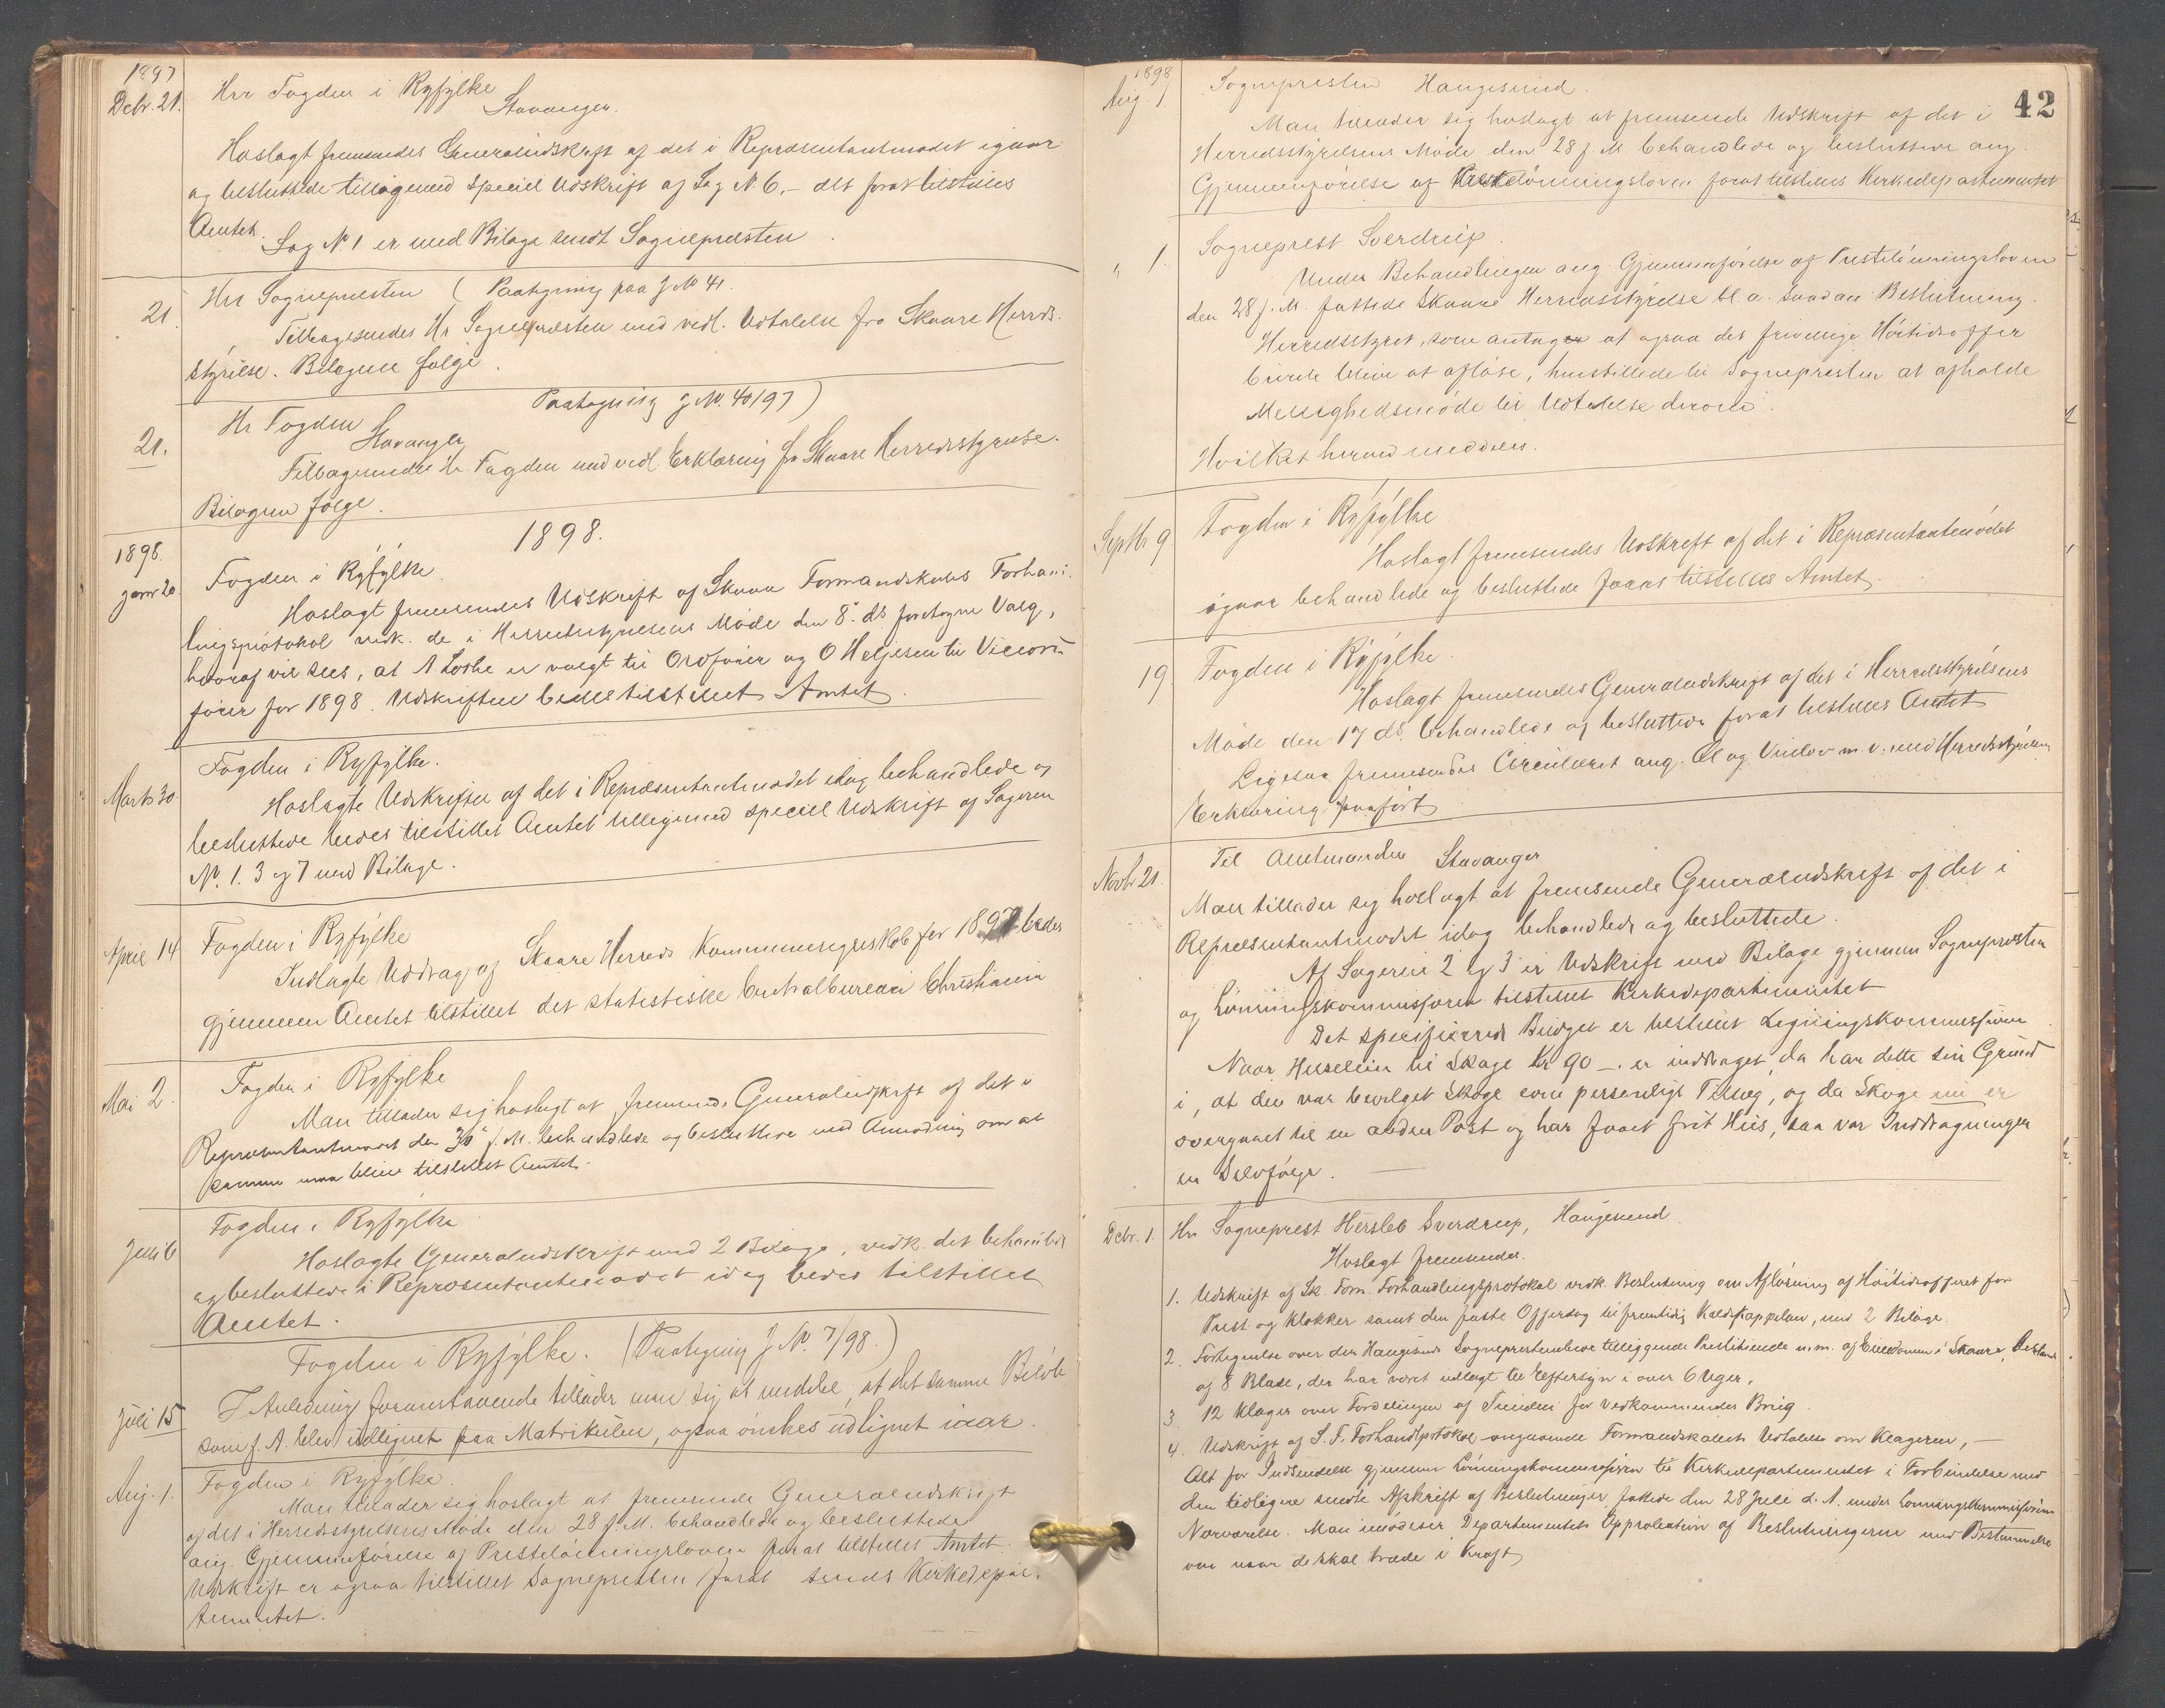 1897
Debr. 21.
Hrr Fogden i Ryfylke
Stavanger.
Hoslagt fremsendes Generaludskrift af det i Repræsentantmødet igaar
og besluttede tilligemed speciel Udskrift af Sag N. 6, – alt forat tilstilles
Amtet.
Sag No 1 er med Bilage sendt Sognepresten.
21.
Hrr Sognepresten ( Paategning paa J No 41.
Tilbagesendes Hr Sognepræsten med vedl. Udtalelse fra Skaare Herreds-
styrelse. Bilagene følge.
21.
Hr Fogden Paategning J No. 40/97)
Stavanger
Tilbagesendes Hr. Fogden med vedl. Erklæring fra Skaare Herredsstyrelse.
Bilagene følge.
1898.
1898.
Janr 20.
Fogden i Ryfylke.
Hoslagt fremsendes Udskrift af Skaare Formandskabs Forhand-
lingsprotokol vedk. de i Herredsstyrelsens Møde den 8de ds. foretagne Valg,
hvoraf vil sees, at A Lothe er valgt til Ordfører og O Heljesen til Viceord-
fører for 1898. Udskriften bedes tilstillet Amtet.
Marts 30.
Fogden i Ryfylke.
Hoslagte Udskrifter af det i Repræsentantmødet idag behandlede og
besluttede bedes tilstillet Amtet tilligemed speciel Udskrift af Sagerne
No. 1. 3 og 7 med Bilage.
April 14
Fogden i Ryfylke
Indlagte Uddrag af Skaare Herreds Kommuneregnskab for 1897 bedes
gjennem Amtet tilstillet det statistiske Centralbureau Christiania
Mai 2.
Fogden i Ryfylke
Man tillader sig hoslagt at fremsende Generaludskrift af det i
Repræsentantmødet den 30te f. M. behandlede og besluttede med Anmodning om at
samme maa blive tilstillet Amtet.
Juni 6
Fogden i Ryfylke
Hoslagte Generaludskrift med 2 Bilage, vedk. det behandlede
og besluttede i Repræsentantmødet idag bedes tilstillet
Amtet.
Juli 15
Fogden i Ryfylke. (Paategning J No. 7/98.)
I Anledning foranstaaende tillader man sig at meddele, at det samme Beløb
som f. A. blev udlignet paa Matrikulen, ogsaa ønskes udlignet iaar.
Aug. 1.
Fogden i Ryfylke.
Man tillader sig hoslagt at fremsende Generaludskrift
af det i Herredsstyrelsens Møde den 28 f. M. behandlede og besluttede
ang. Gjennemførelse af Presteløningsloven forat tilstilles Amtet.
Udskrift er ogsaa tilstillet Sognepresten forat sendes Kirkedepar-
tementet.
42
1898
Aug. 1
Sognepresten Haugesund.
Man tillader sig hoslagt at fremsende Udskrift af det i
Herredsstyrelsens Møde den 28 f. M. behandlede og besluttede ang.
Gjennemførelse af Presteløningsloven forat tilstilles Kirkedepartementet
" 1.
Sogneprest Sverdrup.
Under Behandlingen ang. Gjennemførelse af Presteløningsloven
den 28 f. M. fattede Skaare Herredsstyrelse bl. a. saadan Beslutning.
Herredsstyret, som antager at ogsaa det frivillige Høitidsoffer
burde blive at afløse, henstillede til Sognepresten at afholde
Menighedsmøde til Udtalelse derom.
Hvilket herved meddeles.
Septbr 9.
Fogden i Ryfylke
Hoslagt fremsendes Udskrift af det i Repræsentantmødet
igaar behandlede og besluttede forat tilstilles Amtet.
19
Fogden i Ryfylke.
Hoslagt fremsendes Generaludskrift af det i Herredsstyrelsens
Møde den 17 ds. behandlede og besluttede forat tilstilles Amtet
Ligesaa fremsendes Circulæret ang. Øl og Vinlov m. v. med Herredsstyrelsens
Erklæring paaført
Novbr 21.
Til Amtmanden Stavanger
Man tillader sig hoslagt at fremsende Generaludskrift af det i
Repræsentantmødet idag behandlede og besluttede.
Af Sagerne 2 og 3 er Udskrift med Bilage gjennem Sognepresten
og Lønningskommissjonen tilstillet Kirkedepartementet
Det specificerede Budget er tilstillet Ligningskommissjonen
Naar Husleien til Skage Kr 90 –. er inddraget, da har dette sin Grund
i, at den var bevilget Skage som personligt Tillæg, og da Skage nu er
overgaaet til en anden Post og har faaet frit Hus, saa var Inddragningen
en Selvfølge.
Debr. 1.
Hr Sogneprest Hersleb Sverdrup, Haugesund
Hoslagt fremsendes.
1. Udskrift af Sk. Form. Forhandlingsprotokol vedk. Beslutning om Afløsning af Høitidsofferet for
Prest og Klokker samt den faste Offerdag til fremtidig , med 2 Bilage.
2. Fortegnelse over den Haugesunds Sogneprestembede tilliggende Prestetiende m.m. af Eiendomme i Skaare, bestaaende
af 8 Blade, der har været udlagt til Eftersyn i over 6 Uger,
3. 12 Klager over Fordelingen af Tienden for vedkommendes Brug.
4. Udskrift af S. F. Forhandlprotokol angaaende Formandskabets Udtalelse om Klagerne, –
Alt for Indsendelse gjennem Lønningskommissjonen til Kirkedepartementet i Forbindelse med
den tidligere sendte Afskrift af Beslutninger, fattede den 28 Juli d. A. under Lønningskommissjonens
Nærværelse. Man imødeser Departementets Approbation af Beslutningerne med Bestemmelse
om naar de skal træde i Kraft